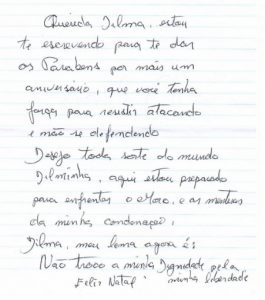 Querida Dilma, estou
te escrevendo para te dar
os Parabens por mais um
aniversario, que você tenha
força para resistir atacando
e não se defendendo
Desejo toda sorte do mundo
Dilminha, aqui estou preparado
para enfrentar o Moro, e as mentiras
da minha condenação,
Dilma, meu lema agora é:
Não troco a minha Dignidade pela
minha liberdade
Feliz Natal